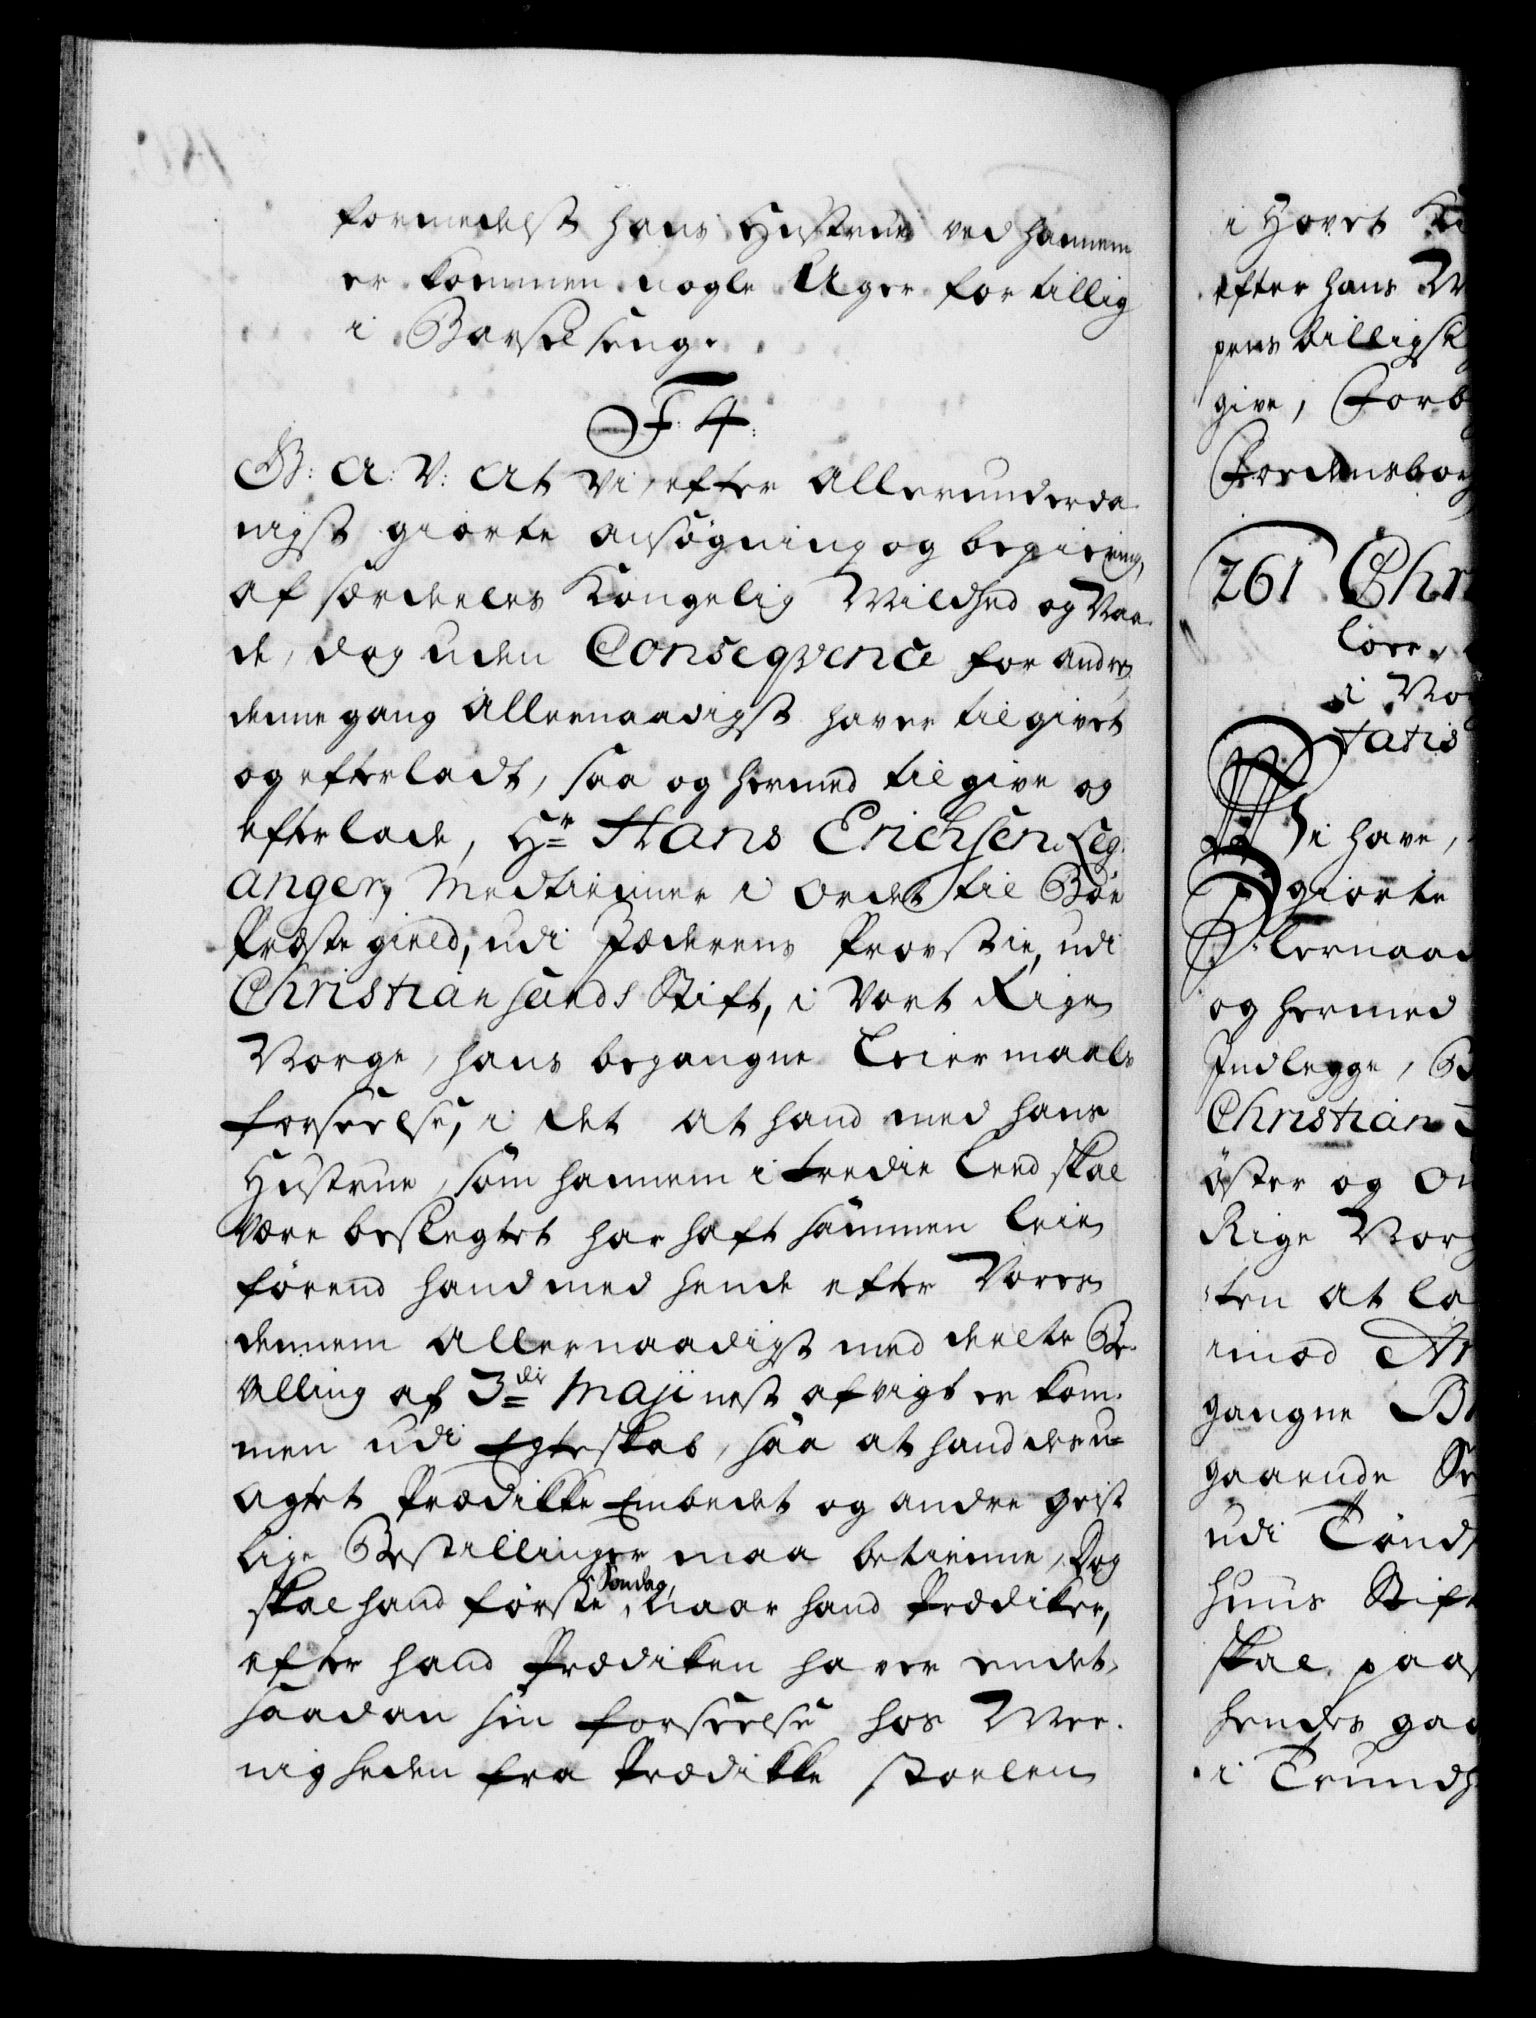 formedelst hans Hustrue ved hannem
er kommen nogle Uger for tillig
i Barselseng.
F. 4.
G: A: V: At Vi, efter Allerunderda-
nigst giorte ansøgning og begiering,
af særdeeles Kongelig Mildhed og Naa-
de, dog uden Conseqvence for andre,
denne gang Allernaadigst haver tilgivet
og efterladt, saa og hermed tilgive og
efterlade, Hr Hans Erichsen Leg-
anger, Medtienner i Ordet til Bøe
Præstegield, udi Jæderens Provstie, udi
Christiansands Stift, i Vort Rige
Norge, hans begangne Leiermaals
forseelse, i det at hand med hans
Hustrue, som hannem i tredie Leed skal
være beslegtet har haft sammen leie
førend hand med hende efter Vores
dennem Allernaadigst meddeelte Be-
villing af 3die Maji nest afvigt er kom-
men udi Egteskab, saa at hand desu-
agtet Prædikke Embedet og andre geist
lige Bestillinger maa betienne, Dog
skal hand første Søndag, naar hand Prædiker,
efter hand Prædiken haver endet,
saadan sin forseelse hos Mee-
nigheden fra Prædikke stoelen
i Hovet
efter hans
pens billigst
give, Forb
Fredensborg
261 Chr
løer
i No
tatis
Vi have,
giorte
Allernaad
og hermed
Indlegge, B
Christian
øster og
Rige Norg
ten at la
imod Ar
gangne
gaaende Se
udi Tønds
huus Stift
skal paa
hendes gaa
i Trundh